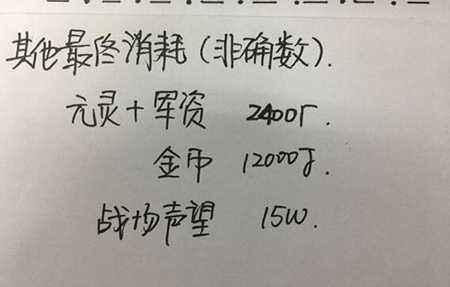 其他最终消耗(非确数).
元灵+军资 2400r.
金币 12000J.
战场声望 15W.